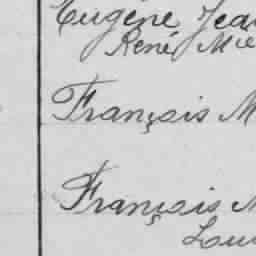 Eugène Jea
René Mie
François M
François M
Lou